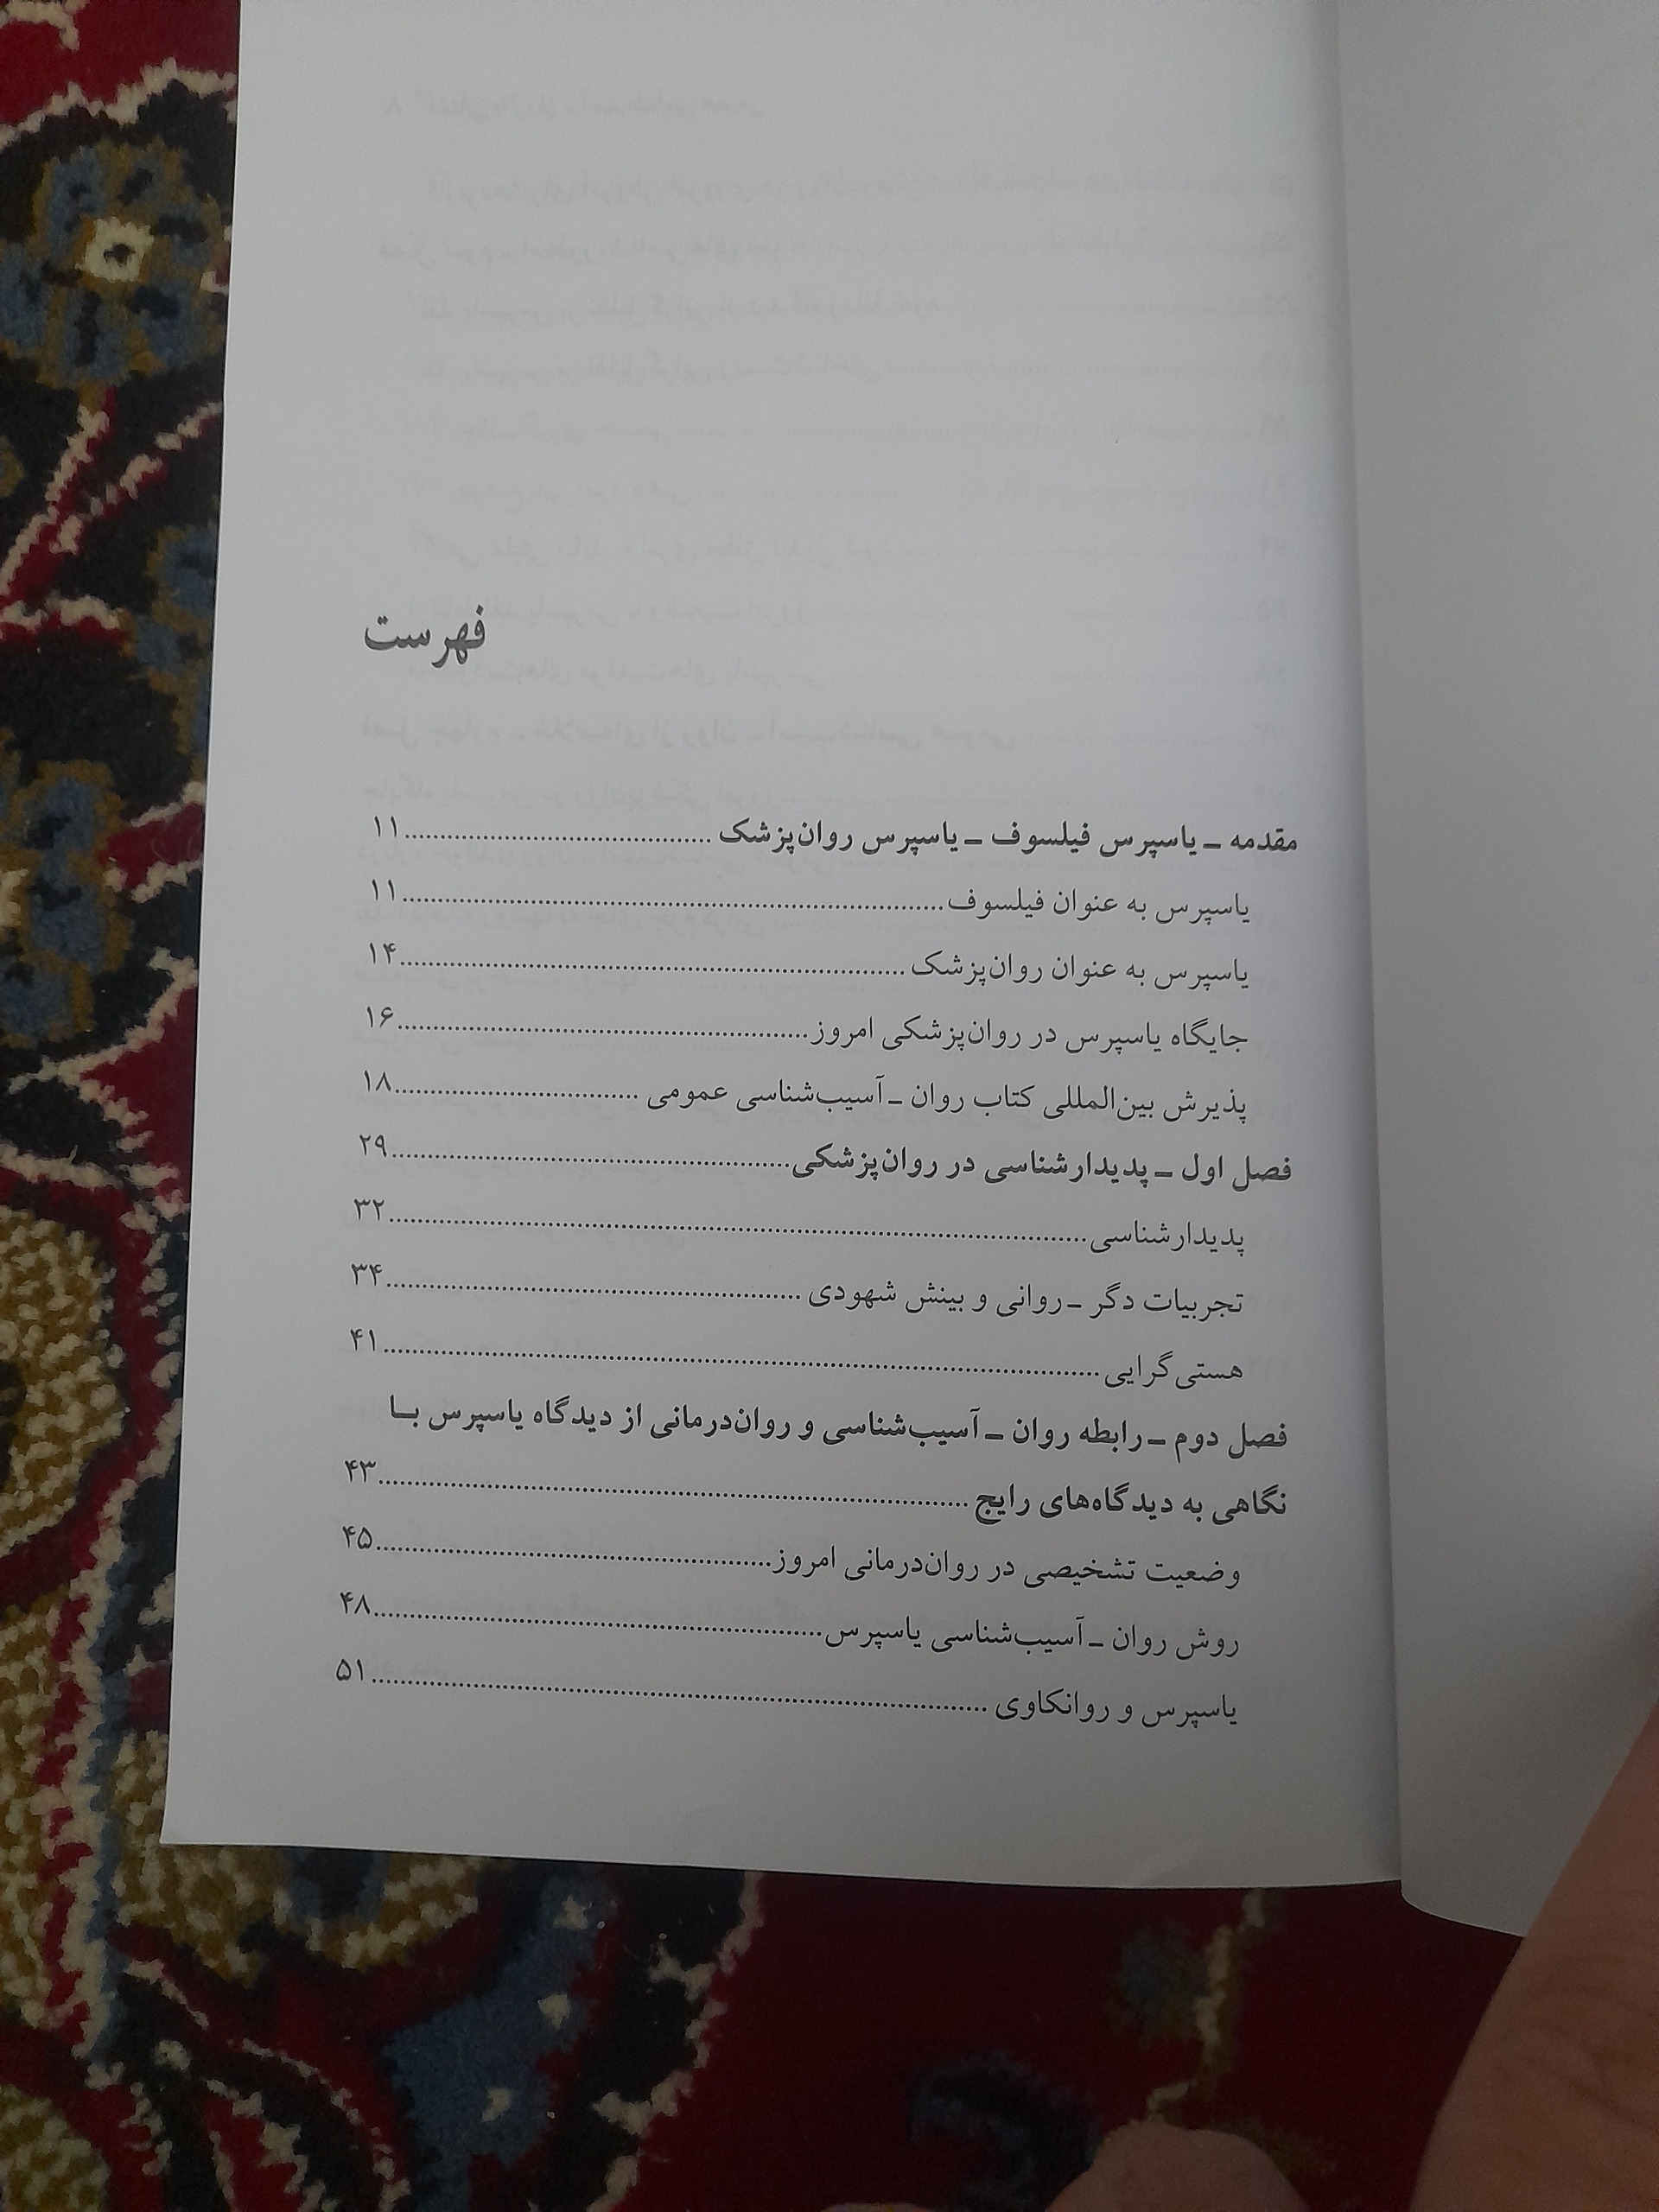 فهرست
مقدمه ـ یاسپرس فیلسوف ـ یاسپرس روان‌پزشک ........ ۱۱
یاسپرس به عنوان فیلسوف ........ ۱۱
یاسپرس به عنوان روان‌پزشک ........ ۱۴
جایگاه یاسپرس در روان‌پزشکی امروز ........ ۱۶
پذیرش بین‌المللی کتاب روان ـ آسیب‌شناسی عمومی ........ ۱۸
فصل اول ـ پدیدارشناسی در روان‌پزشکی ........ ۲۹
پدیدارشناسی ........ ۳۲
تجربیات دگر ـ روانی و بینش شهودی ........ ۳۴
هستی‌گرایی ........ ۴۱
فصل دوم ـ رابطه روان ـ آسیب‌شناسی و روان‌درمانی از دیدگاه یاسپرس بـا
نگاهی به دیدگاه‌های رایج ........ ۴۳
وضعیت تشخیصی در روان‌درمانی امروز ........ ۴۵
روش روان ـ آسیب‌شناسی یاسپرس ........ ۴۸
یاسپرس و روانکاوی ........ ۵۱